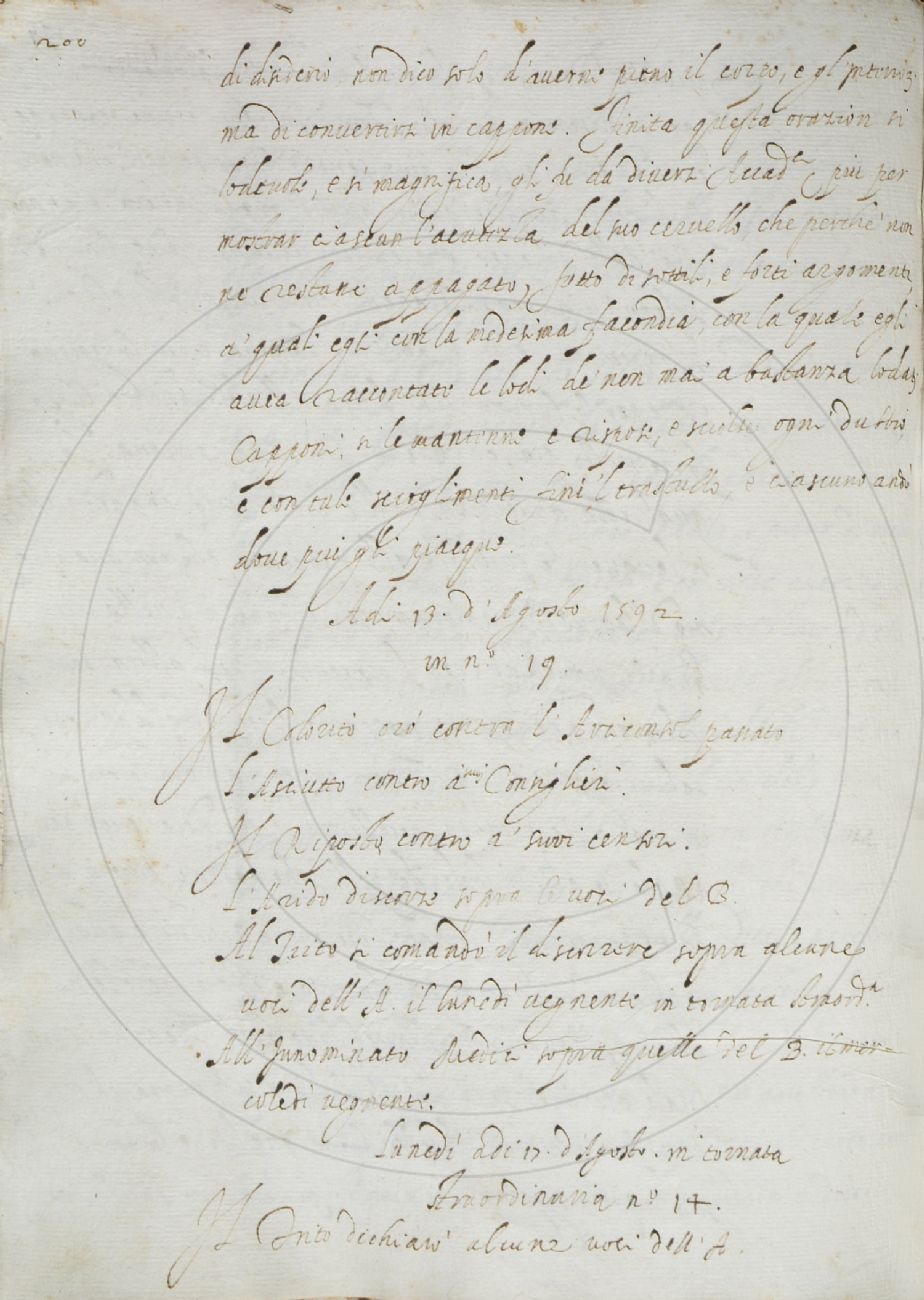 200
di disiderio non dico solo d'averne pieno il corpo, e gl'interiori,
ma di convertirsi in cappone. Finita questa orazion sì
lodevole, e sì magnifica, gli fu da diversi Accad.ci più per
mostrar ciascun l'acutezza del suo cervello, che perchè non
ne restasse appagato, fatto di sottili, e forti argomenti,
a' quali egli con la medesima facondia, con la quale egli
avea raccontato le lodi de' non mai a bastanza lodati
Capponi, si le mantenne e rispose, e sciolse ogni dubbio,
e con tali scioglimenti finì 'l trastullo, e ciascuno andò
dove più gli piacque.
Adi 13. d'Agosto 1592.
in n.o 19.
Il Colorito orò contra l'Arciconsol passato
L'Asciutto contro a' suoi Consiglieri.
Il Riposto contro a' suoi censori.
L'Arido discorse sopra le voci del B.
Al Trito si comandò il discorrere sopra alcune
voci dell'A. il lunedì vegnente in tornata straord.a
All'Innominato sopra quelle del B. il mer-
coledì vegnente.
Lunedì adi 17. d'Agosto. in tornata
straordinaria n.o 14.
Il Trito dichiarò alcune voci dell'A.